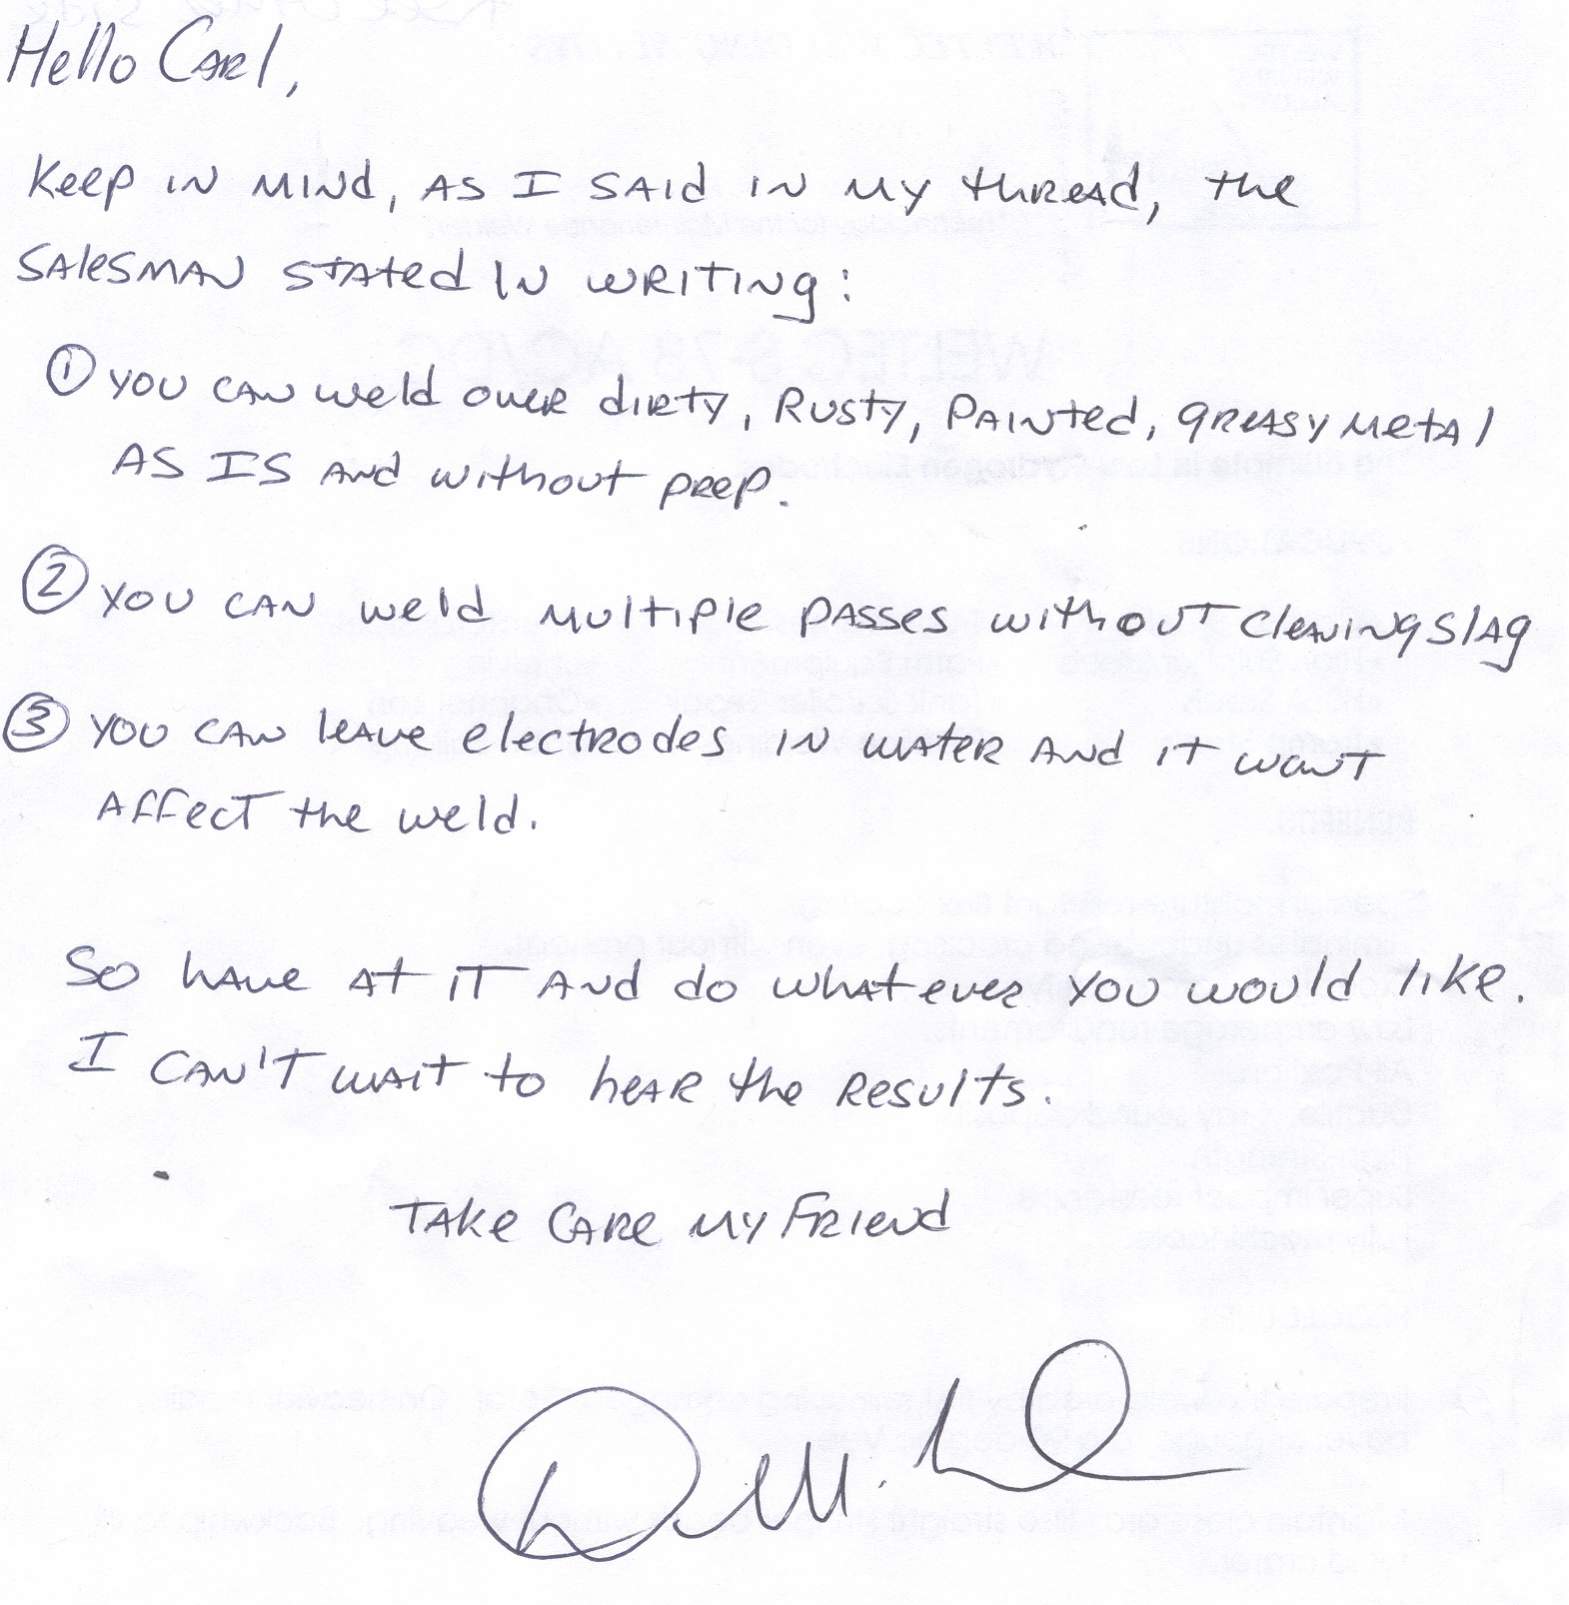 Hello Carl,
Keep in mind, as I said in my thread, the
salesman stated in writing:
① You can weld over dirty, rusty, painted, greasy metal
as is and without prep.
② You can weld multiple passes without cleaning slag
③ You can leave electrodes in water and it wont
affect the weld.
So have at it and do whatever you would like.
I can't wait to hear the results.
Take care my friend